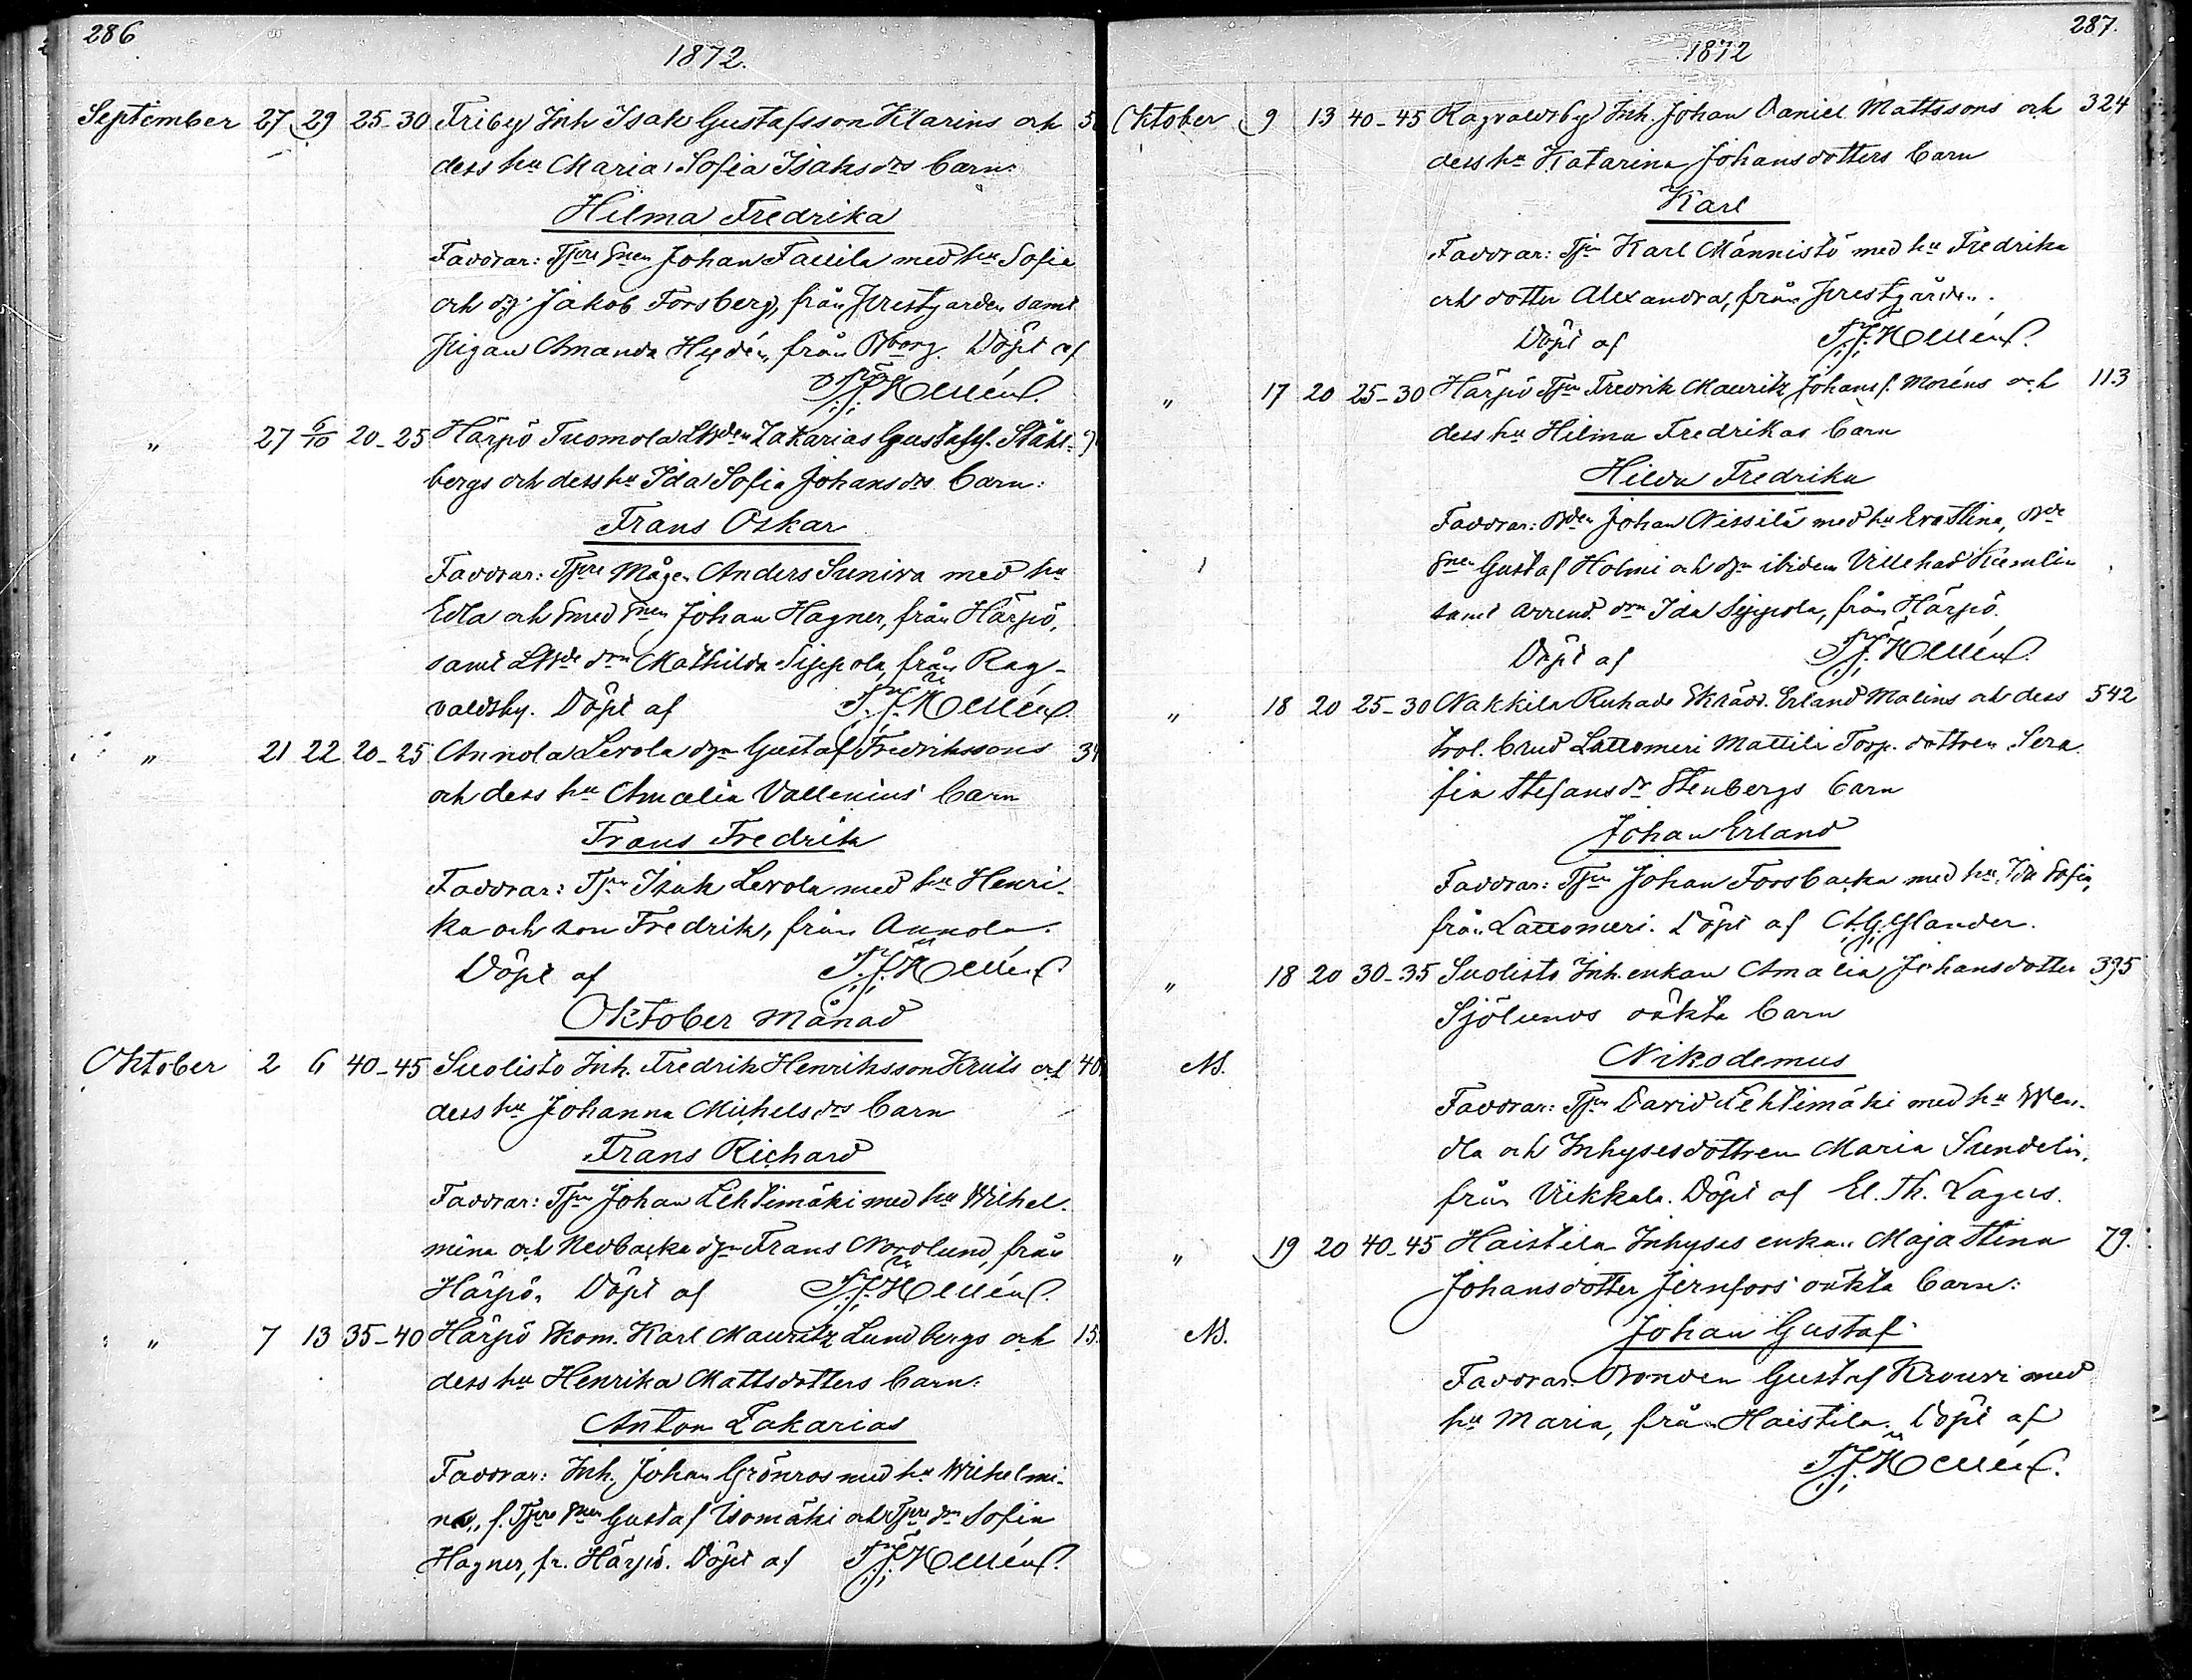 286
1872.
September 27 29 25-30 Friby Inh Isak Gustafsson Klarins och 5
dess hu Maria Sofia Isaksdrs barn:
Hilma Fredrika
Faddrar: Tjpre Snen Johan Tallila med hu Sofia
och dg: Jakob Forsberg, från Prestgården samt
Pigan Amanda Hydén, från Bborg. Döpt af
F.J. Hellén
" 27 6/10 20-25 Härpö Tuomola Lbden Zakarias Gustafss. Ståhl-
bergs och dess hu Ida Sofia Johansdrs barn:
Frans Oskar
Faddrar: Tjpre Mågen Anders Suniva med hu
Edla och Smed Snen Johan Hagner, från Härpö,
samt Lbde drn Mathilda Sippola, från Rag-
valdsby. Döpt af F.J. Hellén
" 21 22 20-25 Annola Levola dgn Gustaf Fredrikssons 34
och dess hu Amalia Vallenius barn
Frans Fredrik
Faddrar: Tjpn Isak Levola med hu Henri-
ka och son Fredrik, från Annola.
Döpt af F.J. Hellén
Oktober Månad
Oktober 2 6 40-45 Suolisto Inh. Fredrik Henriksson Kruts och 40
dess hu Johanna Michelsdrs barn
Frans Richard
Faddrar: Tjpn Johan Lehtimäki med hu Wilhel-
mina och Nedbacka dgn Frans Nordlund, från
Härpö. Döpt af F.J. Hellén
" 7 13 35-40 Härpö Skom. Karl Mauritz Lundbergs och 15
dess hu Henrika Mattsdotters barn:
Anton Zakarias
Faddrar: Inh. Johan Grönroos med hu Wilhelmi-
na, f. Tjpre Snen Gustaf Isomäki och Tjpre drn Sofia
Hagner, fr. Härpö. Döpt af F.J. Hellén
287.
1872
Oktober 9 13 40-45 Ragvaldsby Inh. Johan Daniel Mattssons och 324
dess hu Katarina Johansdotters barn
Karl
Faddrar: Tjpn Karl Männistö med hu Fredrika
och dotter Alexandra, från Prestgården.
Döpt af F.J. Hellén
" 17 20 25-30 Härpö Tjpn Fredrik Mauritz Johanss. Moréns och 113
dess hu Hilma Fredrikas barn
Hilda Fredrika
Faddrar: Bden Johan Nissilä med hu Eva Stina, Bde
Snen Gustaf Holmi och dgn ibidem Villehad Kiemlin
samt Arrend. drn Ida Sippola, från Härpö.
Döpt af F.J. Hellén
" 18 20 25-30 Nakkila Ruhade Skrädd. Erland Malins och dess 542
trol. brud Lattomeri Mattila Torp. dottren Sera
fia Stefansdr Stenbergs barn
Johan Erland
Faddrar: Tjpn Johan Forsbacka med hu Ida Sofia,
från Lattomeri. Döpt af A.G. Glander.
" 18 20 30-35 Suolisto Inh. enkan Amalia Johansdotter 395
Sjölunds oäkta barn
NB. Nikodemus
Faddrar: Tjpn David Lehtimäki med hu Wen-
dla och Inhysesdottren Maria Sundelin,
från Viikkala. Döpt af El. Th. Lagus.
" 19 20 40-45 Haistila Inhyses enkan Maja Stina 79.
Johansdotter Jernfors' oäkta barn:
NB. Johan Gustaf
Faddrar: Bonden Gustaf Krouvi med
hu Maria, från Haistila. Döpt af
F.J. Hellén